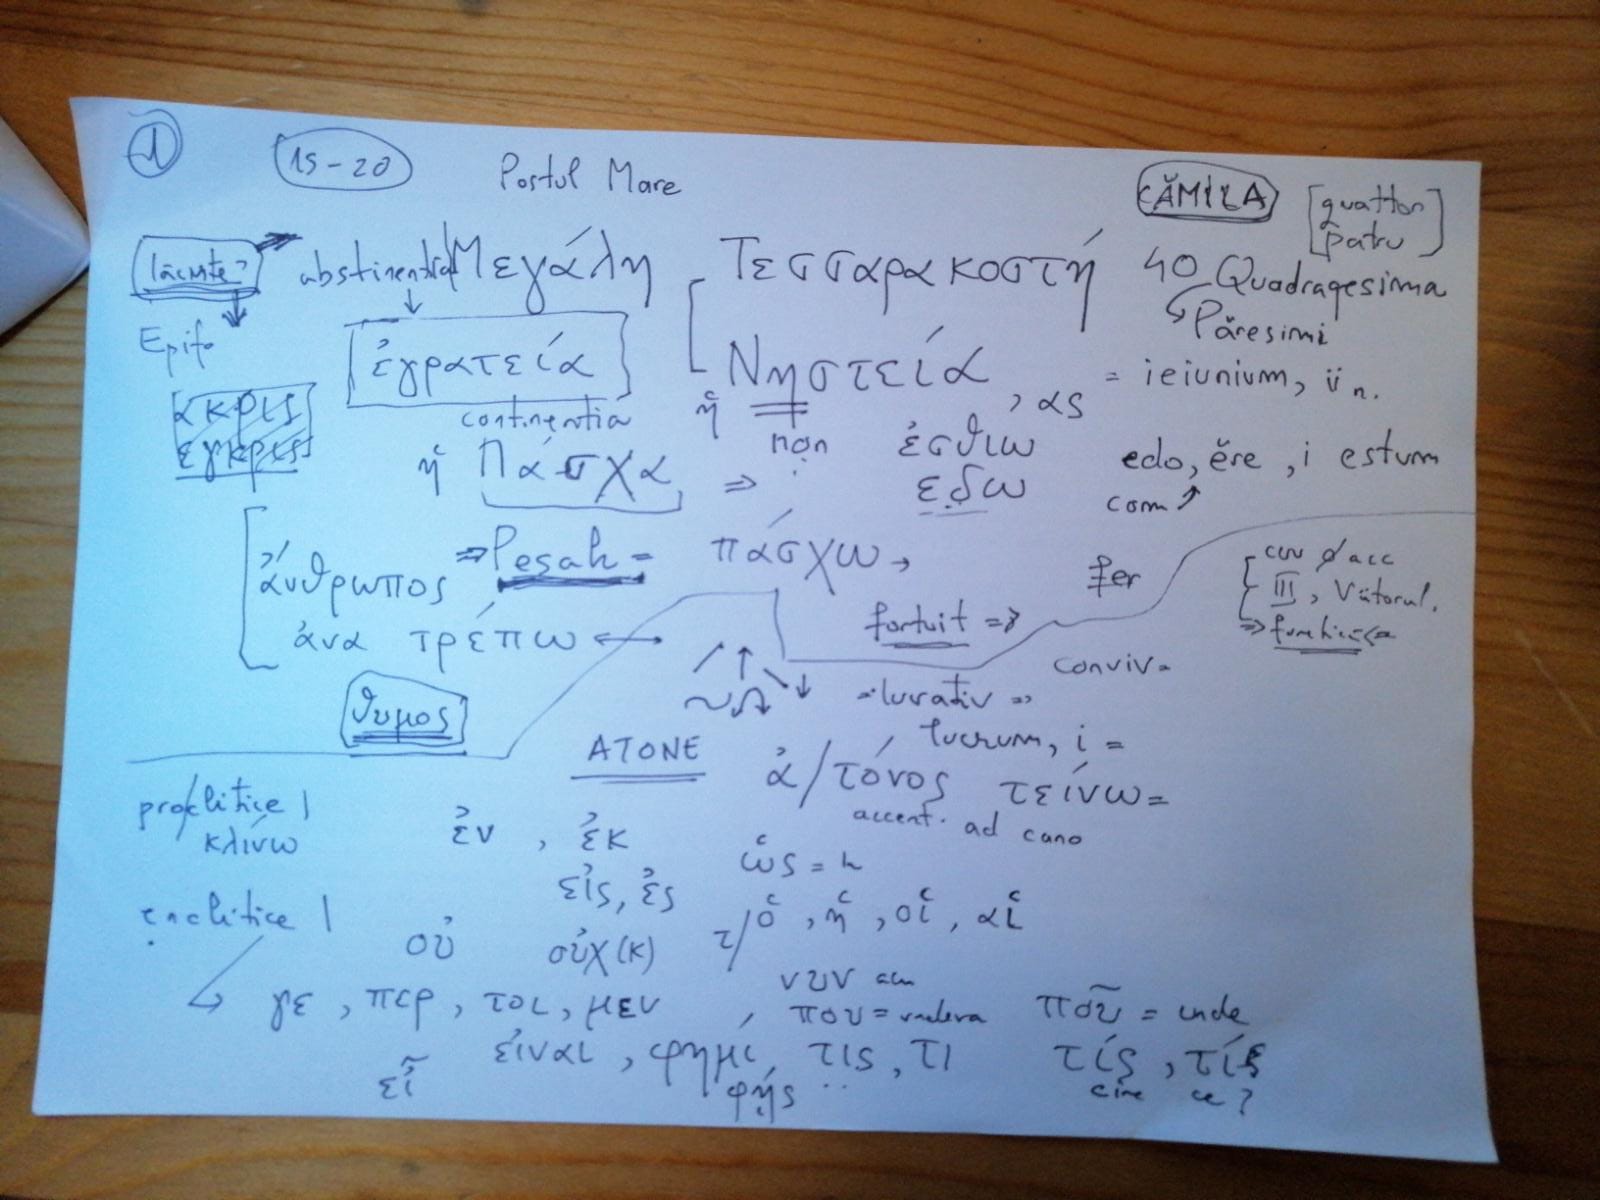 1
15-20 Postul Mare
CĂMILA [quattor
patru]
lăcuste? abstinentia Μεγάλη Τεσσαρακοστή 40 Quadragesima
Păresimi
Epifa
ἐγρατεία Νηστεία, ας = ieiunium, ii n.
ακρις continentia ἡ non ἐσθιω
εγκρις ἡ Πάσχα ⇒ εδω edo, ĕre, i estum
com
ἄνθρωπος ⇒ Pesah = πάσχω → fer
cuv ∅ acc
III, Viitorul.
ἀνα τρέπω ↔ fortuit ⇒
conviv
θυμος
lucrativ
lucrum, i =
ATONE ἀ/τόνος τείνω =
accent. ad cano
proclitice |
κλίνω ἐν, ἐκ
ὡς = h
εἰς, ἐς
enclitice | οὐ οὐχ(κ) τ/ὁ, ἡ, οἱ, αἱ
νυν acu
γε, περ, τοι, μεν, που = undeva ποῦ = unde
εἶ εἰναι, φημι τις, τι τίς, τίς
φῄς cine ce?